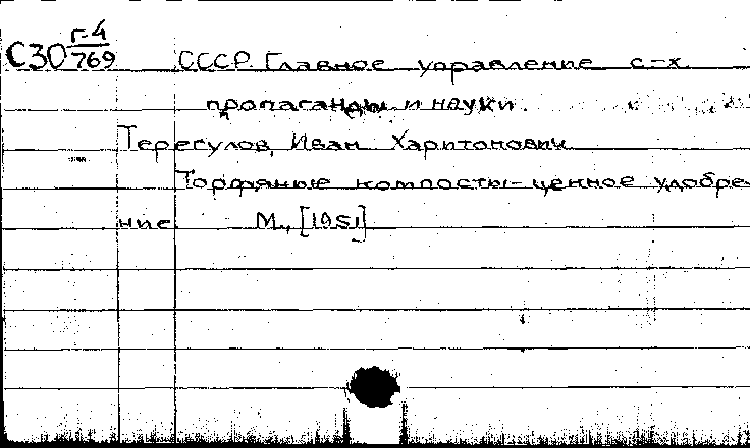 С30 Г-4/769
СССР. Главное управление с-х.
пропаганды и науки.
Терегулов, Иван Харитонович
Торфяные компосты-ценное удобре
ние. М., [1951]